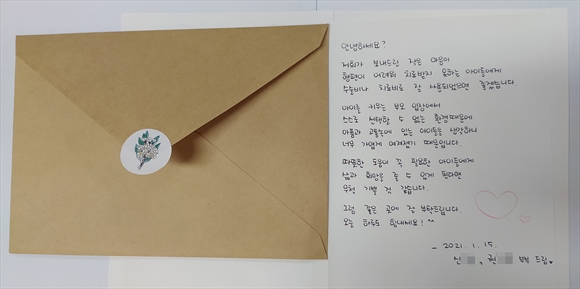 안녕하세요?
저희가 보내드린 작은 마음이
형편이 어려워 치료받지 못하는 아이들에게
수술비나 치료비로 잘 사용되었으면 좋겠습니다.
아이를 키우는 부모 입장에서
스스로 선택할 수 없는 환경때문에
아픔과 고통속에 있는 아이들을 생각하니
너무 가엽게 여겨졌기 때문입니다.
따뜻한 도움이 꼭 필요한 아이들에게
삶과 희망을 줄 수 있게 된다면
무척 기쁠 것 같습니다.
그럼 좋은 곳에 잘 부탁드립니다.
오늘 하루도 힘내세요! ^^
- 2021. 1. 15.
신 , 권 부부 드림.♥